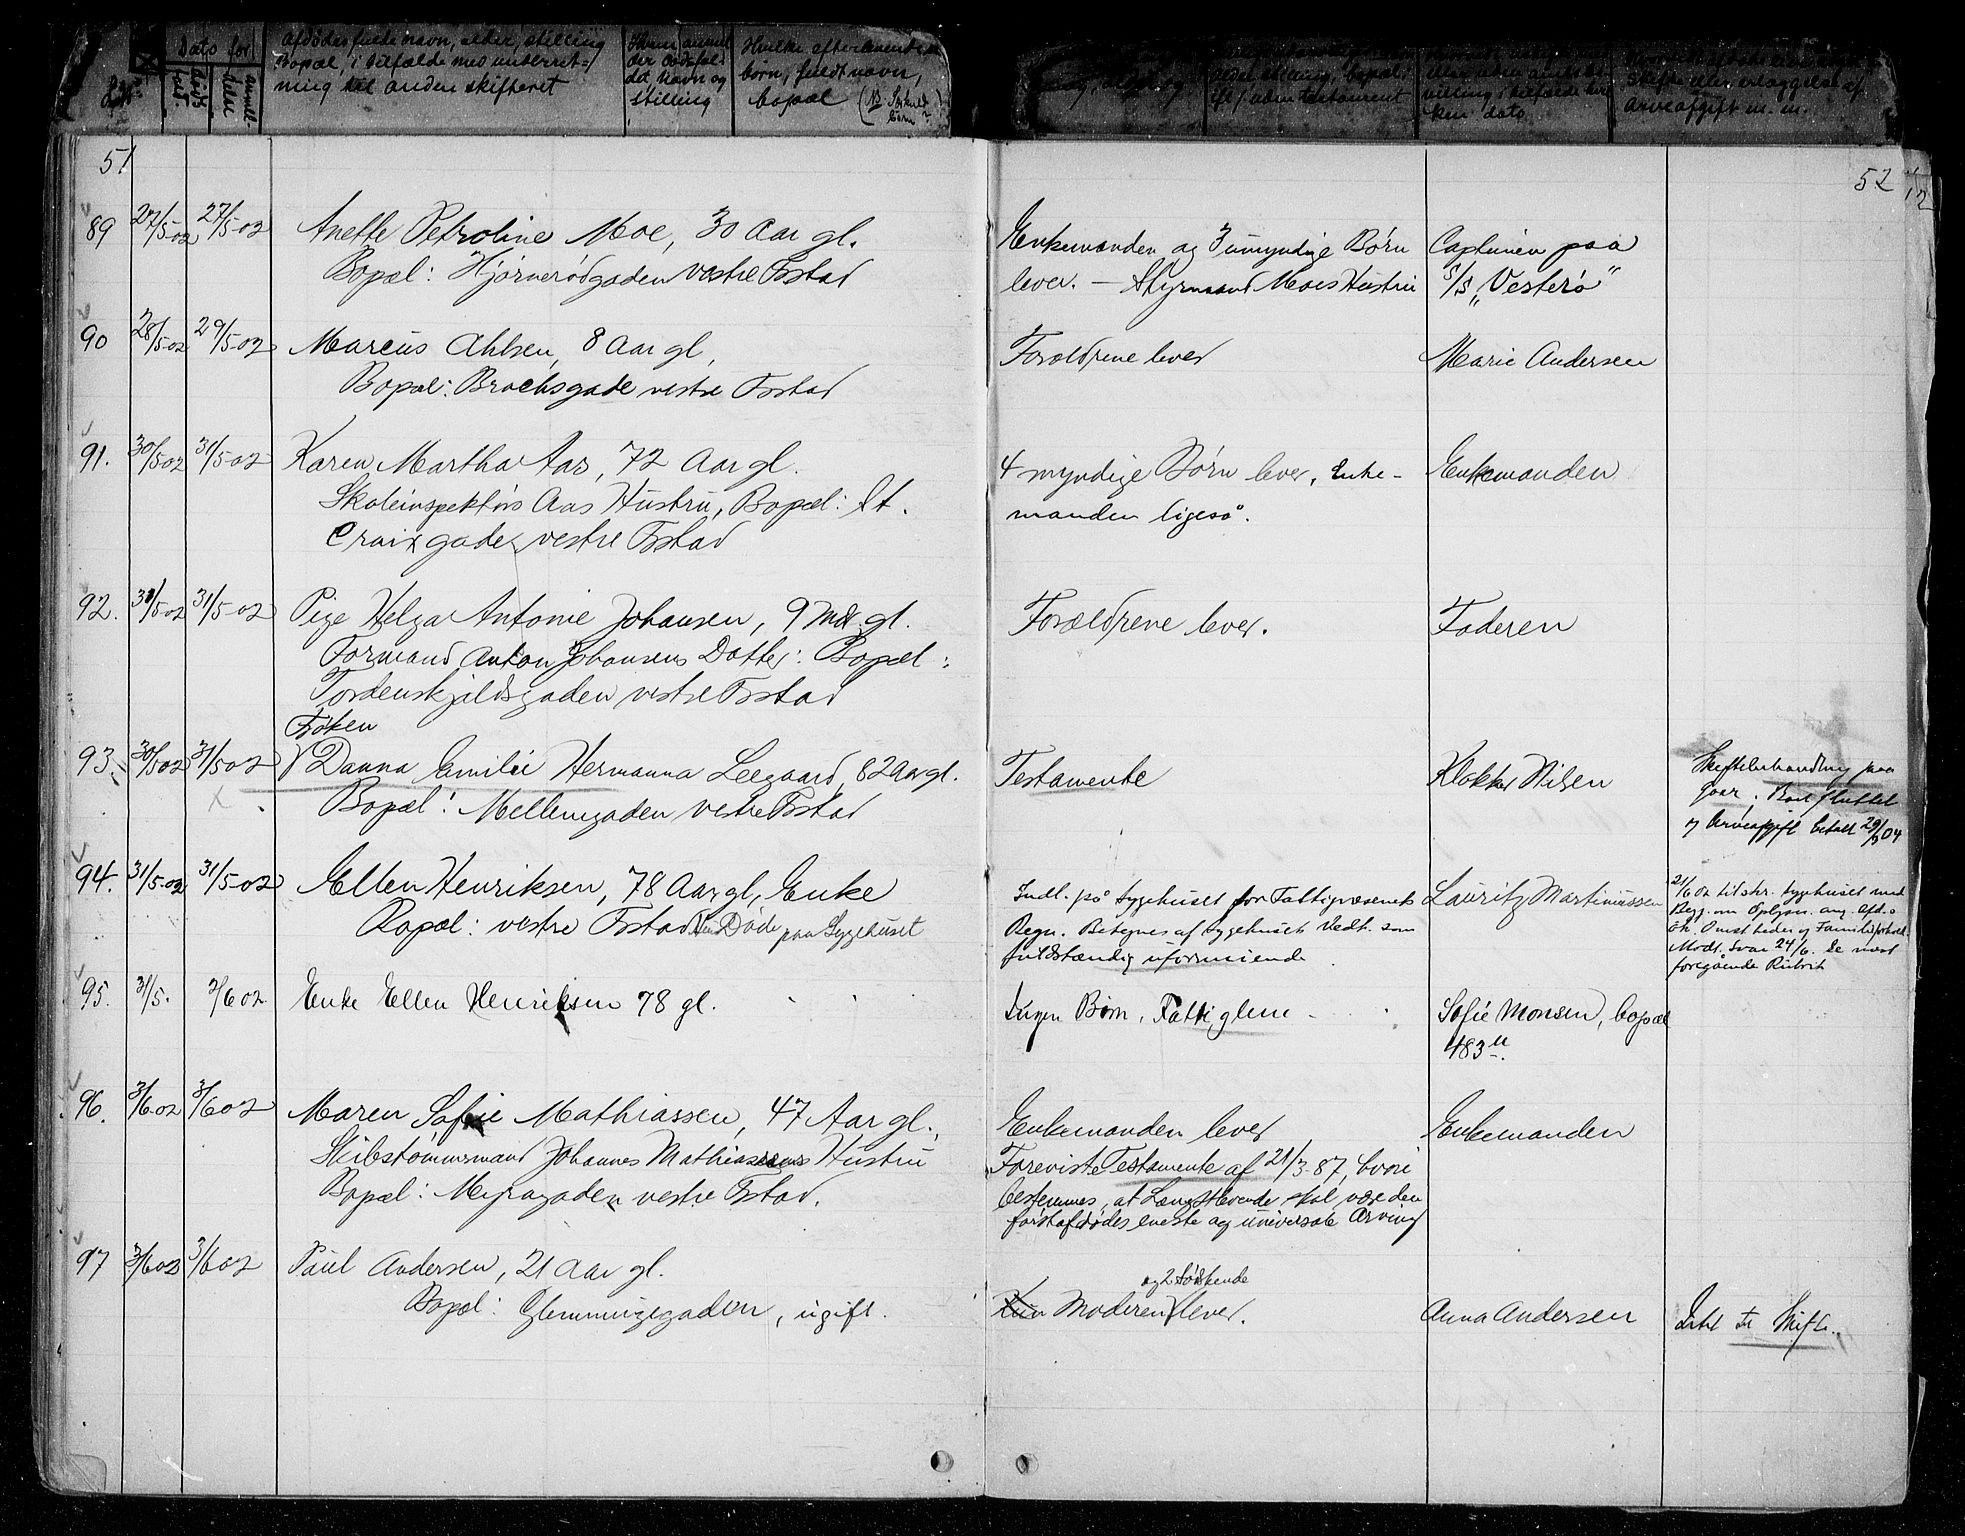 Dato for
Afdødes fulde navn, alder, stilling
Bopæl, i tilfælde med underret-
ning til anden skifteret
stilling
Hvilke efterlevende
børn, fuldt navn,
bopæl
51
52
89 27/5-02 27/5-02 Anette Petroline Moe, 30 Aar gl.
Bopæl: Hjørnerødgaden vestre Fstad
Enkemanden og 3 umyndige Børn
lever. — Styrmand Moes Hustru
Captainen paa
S/S "Vesterø"
90 28/5-02 29/5-02 Marcus Ahlsen, 8 Aar gl,
Bopæl: Brochsgade vestre Fstad
Forældrene lever
Marie Andersen
91. 30/5 02 31/5-02 Karen Martha Aas, 72 Aar gl.
Skoleinspektørs Aas Hustru, Bopæl: St.
Croixgade, vestre Fstad
4 myndige Børn lever, Enke-
manden ligeså.
Enkemanden
92. 31/5-02 31/5-02 Pige Helga Antonie Johansen, 9 Mdr. gl.
Formand Anton Johansens Datter. Bopæl:
Tordenskjoldsgaden vestre Fstad
Forældrene lever.
Faderen
Frøken
93. 30/5 02 31/5 02 Danna Emilie Hermanna Leegaard, 82 Aar gl.
Bopæl: Mellemgaden vestre Fstad
Testamente
Klokker Nilsen
Skiftebehandling paa
gaar. Boet sluttet
og Arveafgift betalt 29/ 04
94. 31/5-02 31/5-02 Ellen Henriksen, 78 Aar gl, Enke
Bopæl: vestre Fstad Døde paa Sygehuset
Indl. på Sygehuset for Fattigvæsenets
Regn. Betegnes af Sygehusets Vedk. som
fuldstændig uformuende
Lauritz Martiniussen
21/6 02 tilskr. Sygehuset med
Beg. om Oplysn. ang. Afd.s
Øk. Omstheder og Familieforhold.
Modt. Svar 24/6. Se næst
foregående Rubrik
95. 31/5. 2/6 02 Enke Ellen Henriksen 78 gl.
Ingen Børn, Fattiglem
Sofie Monsen, bopæl
483
96. 3/6-02 3/6 02 Maren Sofie Mathiassen, 47 Aar gl.,
Skibstømmermand Johannes Mathiassens Hustru
Bopæl: Myragaden vestre Fstad.
Enkemanden lever
Foreviste Testamente af 21/3-87, hvori
bestemmes, at Længstlevende skal være den
førstafdødes eneste og universale Arving
Enkemanden
97 3/6 02 3/6 02 Paul Andersen, 21 Aar gl.
Bopæl: Glemmingegaden, ugift.
og 2 Södskende
Kun Moderen lever.
Anna Andersen
Intet til Skifte.